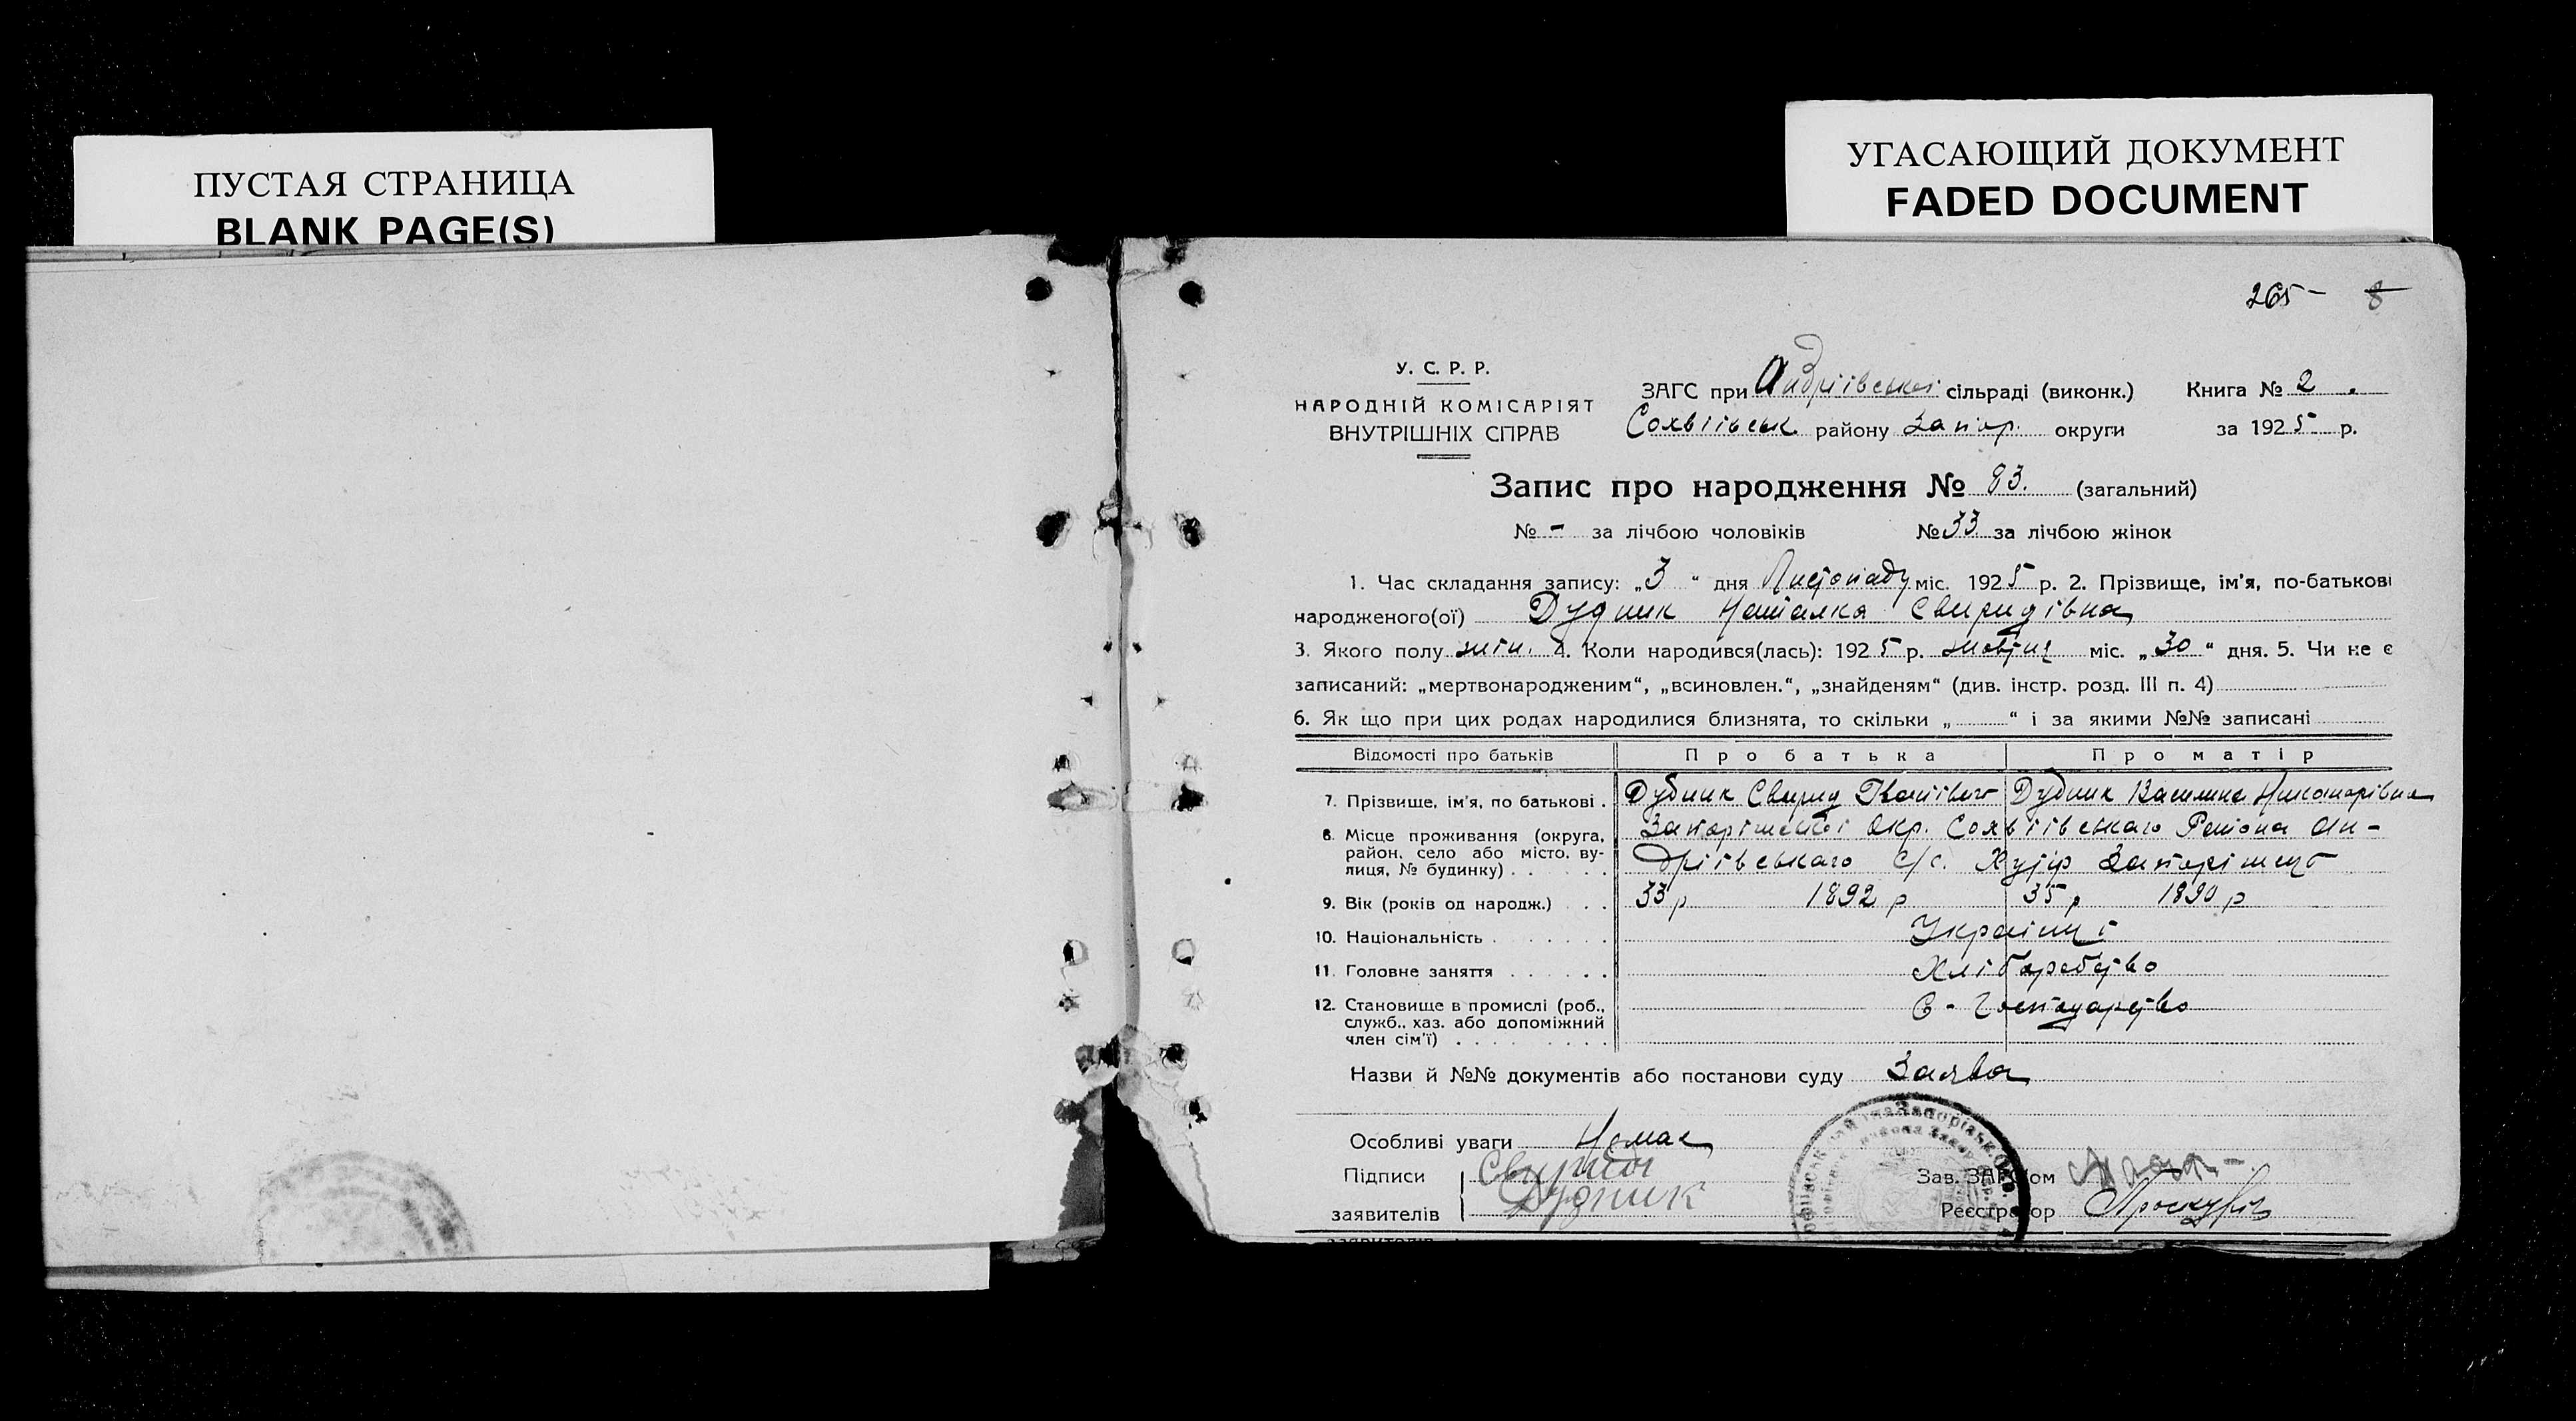 ПУСТАЯ СТРАНИЦА
BLANK PAGE(S)
УГАСАЮЩИЙ ДОКУМЕНТ
FADED DOCUMENT
265 - 8
У. С. Р. Р.
НАРОДНІЙ КОМІСАРІЯТ
ВНУТРІШНІХ СПРАВ
ЗАГС при Андріівської сільраді (виконк.) Книга № 2
Сохвіівськ. району Запор. округи за 1925 р.
Запис про народження № 83. (загальний)
№ - за лічбою чоловіків № 33 за лічбою жінок
1. Час складання запису: „3“ дня Листопаду міс. 1925 р. 2. Прізвище, ім'я, по-батькові
народженого(ої) Дудник Наталка Свиридівна
3. Якого полу жін. 4. Коли народився(лась): 1925 р. жовтня міс. „30“ дня. 5. Чи не є
записаний: „мертвонародженим“, „всиновлен.“, „знайденям“ (див. інстр. розд. III п. 4)
6. Як що при цих родах народилися близнята, то скільки „ “ і за якими №№ записані
Відомості про батьків Про батька Про матір
7. Прізвище, ім'я, по батькові . Дудник Свирид Дудник Василина Никонорівна
8. Місце проживання (округа, Запоріжської Окр. Сохвіівського Района Ан-
район, село або місто, ву- дріівського с/с. Хутір
лиця, № будинку)
9. Вік (років од народж.) 33 р 1892 р 35 р 1890 р
10. Національність Українці
11. Головне заняття Хліборобство
12. Становище в промислі (роб., С - Господарство
служб., хаз. або допоміжний
член сім'ї)
Назви й №№ документів або постанови суду Заява
Особливі уваги Немає
Підписи Свирид
заявителів Дудник
Зав. ЗАГСом
Реєстратор